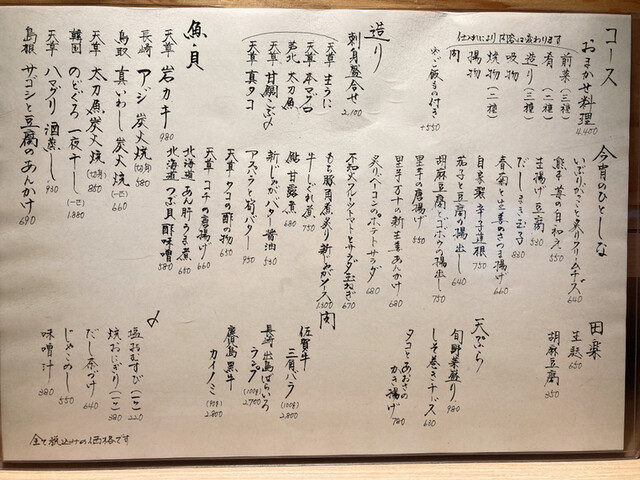 コース
おまかせ料理 4,400
仕入れにより内容は変わります
前菜(三種)
肴(二種)
造り(三種)
吸物
焼物(二種)
揚物
肉
〆ご飯もの付き +550
造り
刺身盛合せ 2,100
天草 生うに
天草 本マグロ
天草 真タコ
魚・貝
天草 岩カキ 980
長崎 アジ炭火焼(切身) 580
鳥取 真いわし炭火焼(一匹) 660
天草 太刀魚炭火焼(切身) 850
韓国 のどぐろ一夜干し(一匹) 1,880
天草 ハマグリ酒蒸し 930
島根 サゴシと豆腐のあんかけ 690
今宵のひとしな
いぶりがっこと炙りクリムチーズ 640
生揚げ豆腐 580
だしまき玉子 580
春菊と生姜のさつま揚げ 660
自家製辛子蓮根 750
茄子と豆腐の揚出し 640
胡麻豆腐とゴボウの揚出し 750
里芋の唐揚げ 550
里芋万十の新生姜あんかけ 680
炙りベーコンのポテトサラダ 680
不知火フルーツトマトとサラダ玉ねぎ 670
もち豚角煮炙り新じゃがソース 1,200
牛しぐれ煮 750
鮎甘露煮 680
新じゃがバター醤油 530
アスパラと筍バター 950
天草 タコの酢の物 630
天草 コチの唐揚げ 660
北海道 あん肝うま煮 680
北海道 つぶ貝酢味噌 580
田楽
生麩 650
胡麻豆腐 850
天ぷら
旬野菜盛り 980
しそ巻きチーズ 610
タコとあおさのかき揚げ 780
肉
佐賀牛 三角バラ(100g) 2,800
長崎 出島ばらいろ ランプ(100g) 2,700
鹿児島黒牛 カイノミ(90g) 2,800
〆
塩おむすび(一コ) 220
焼おにぎり(一コ) 380
だし茶づけ 640
じゃこめし 550
味噌汁 380
全て税込みの価格です